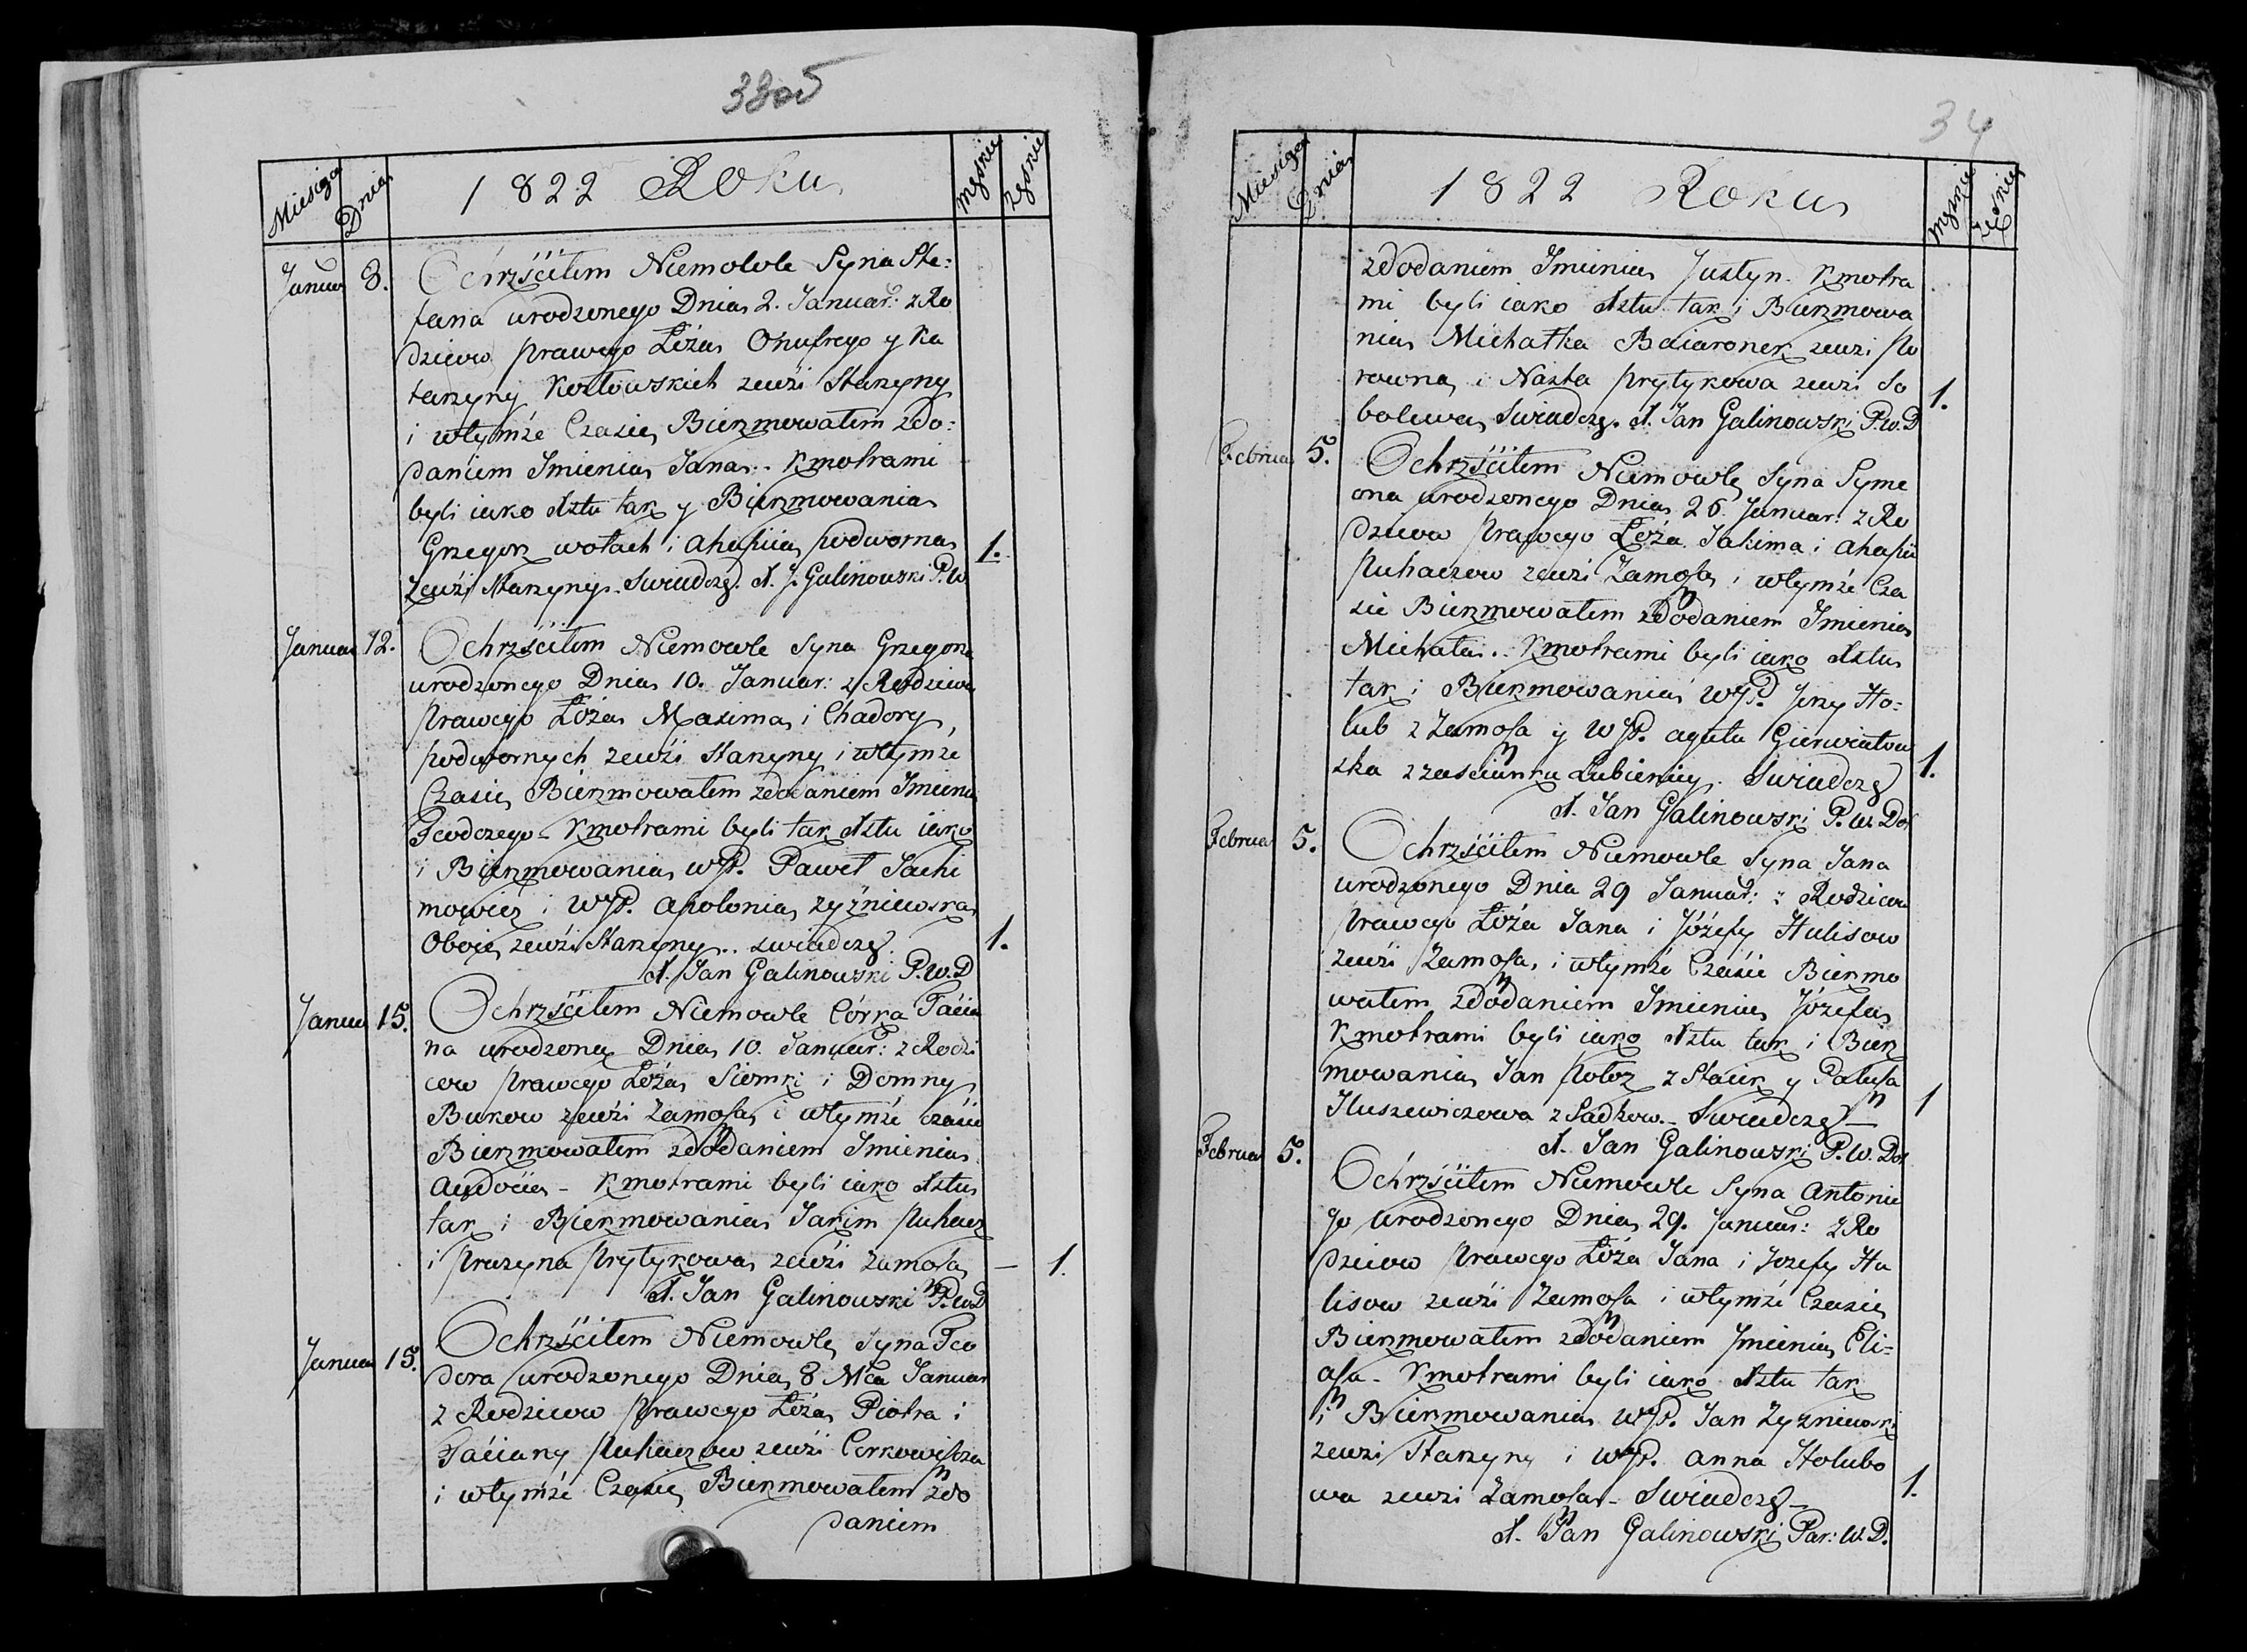 33об
Miesiąca
Dnia
1822 Roku
Męskie
Januar 3. Ochrzściłem Niemowle Syna Ste-
fana urodzonego Dnia 2. Januar: z Ro
dziców prawego Łoża Onufrego y Ka
tarzyny Kozłowskich zewśi Starzyny
i wtymże Czasie Bierzmowałem zdo-
daniem Imienia Jana.. Kmotrami
byli iako Xztu tak y Bierzmowania
Grzegorz wołach i Ahapiia podworna
zewśi Starzyny. Swiadczę. X. J. Galinowski P.W.
1.
Januar 12. Ochrzściłem Niemowle Syna Grzegorza
urodzonego Dnia 10. Januar: z Rodziców
prawego Łoża Maxima i Chadory
podwornych zewśi Starzyny i wtymże
Czasie Bierzmowałem zdodaniem Imienia
Kmotrami byli tak Xztu iako
i Bierzmowania WJP. Paweł Jachi
mowicz i WJP. Apolonia Zyźniewska
Oboie zewśi Starzyny.. swiadczę
1.
X. Jan Galinowski P.W.D
Januar 15. Ochrzściłem Niemowle Córka Taćia
na urodzona Dnia 10. Januar: z Rodzi
ców prawego Łoża Siomki i Domny
Bukow zewśi Zamosza i wtymże czasie
Bierzmowałem zdodaniem Imienia
Audocia - Kmotrami byli iako Xztu
tak i Bierzmowania Jakim Puhacz
i Pruzyna Prytykowa zewśi Zamosza
— 1.
X. Jan Galinowski P.W.D
Januar 15. Ochrzściłem Niemowle Syna Teo
dora urodzonego Dnia 8 Mca Januar
z Rodziców prawego Łoża Piotra i
Taćiany Puhaczow zewśi Cerkowiszcza
i wtymże Czasie Bierzmowałem zdo
daniem
34
Miesiąca
Dnia
1822 Roku
Męskie
zdodaniem Imienia Justyn. Kmotra
mi byli iako Xztu tak i Bierzmowa
nia Michałka zewśi Po
rowna i Nasta Prytykowa zewśi So
bolewa Swiadczę. X. Jan Galinowski P.W.D
1.
Februar 5. Ochrzściłem Niemowle Syna Syme
ona urodzonego Dnia 26 Januar: z Ro
dziców Prawego Łoża Jakima i Ahapii
Puhaczow zewśi Zamosza i wtymże Cza
sie Bierzmowałem zdodaniem Imienia
Michała.. Kmotrami byli iako Xztu
tak i Bierzmowania WJP. Jerzy Ho-
lub z Zamosza y WJP. Agata Gierwiatow
ska z zascianku Lubienicy. Swiadczę
1.
X. Jan Galinowski P.W.Do
Februar 5. Ochrzściłem Niemowle Syna Jana
urodzonego Dnia 29 Januar: z Rodziców
Prawego Łoża Jana i Józefy Hulisow
zewśi Zamosza, i wtymże Czasie Bierzmo
wałem zdodaniem Imienia Józefa
Kmotrami byli iako Xztu tak i Bierz
mowania Jan Połoz z Staiek y Palusza
Iluszewiczowa z Sadkow. - Swiadczę —
1
X. Jan Galinowski P.W.Do
Februar 5. Ochrzściłem Niemowle Syna Antonie
go urodzonego Dnia 29. Januar: z Ro
dziców prawego Łoża Jana i Jozefy Hu
lisow zewśi Zamosza i wtymże Czasie
Bierzmowałem zdodaniem Jmienia Eli-
asza - Kmotrami byli iako Xztu tak
i Bierzmowania WJP. Jan Zyzniewski
zewsi Starzyny i WJP. Anna Holubo
wa zewsi Zamosza - Swiadczę —
1.
X. Jan Galinowski Par: W.D.